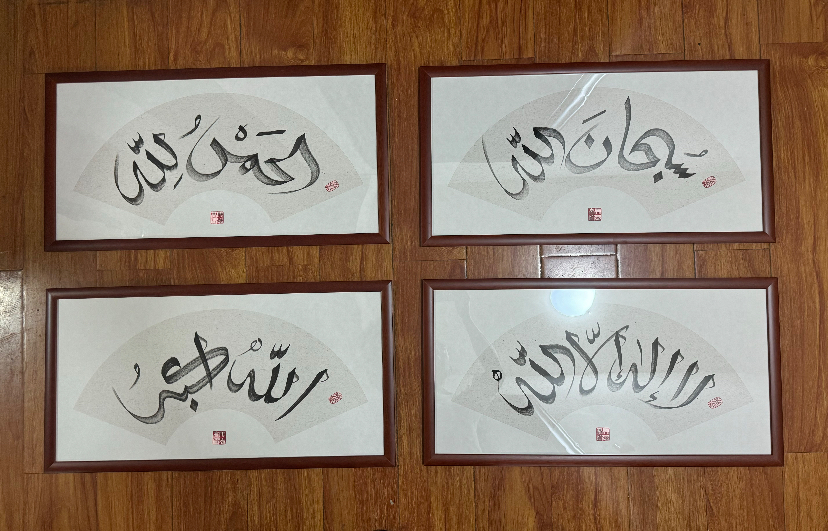 الحمد لله
سبحان الله
الله اكبر
لا إله إلا الله